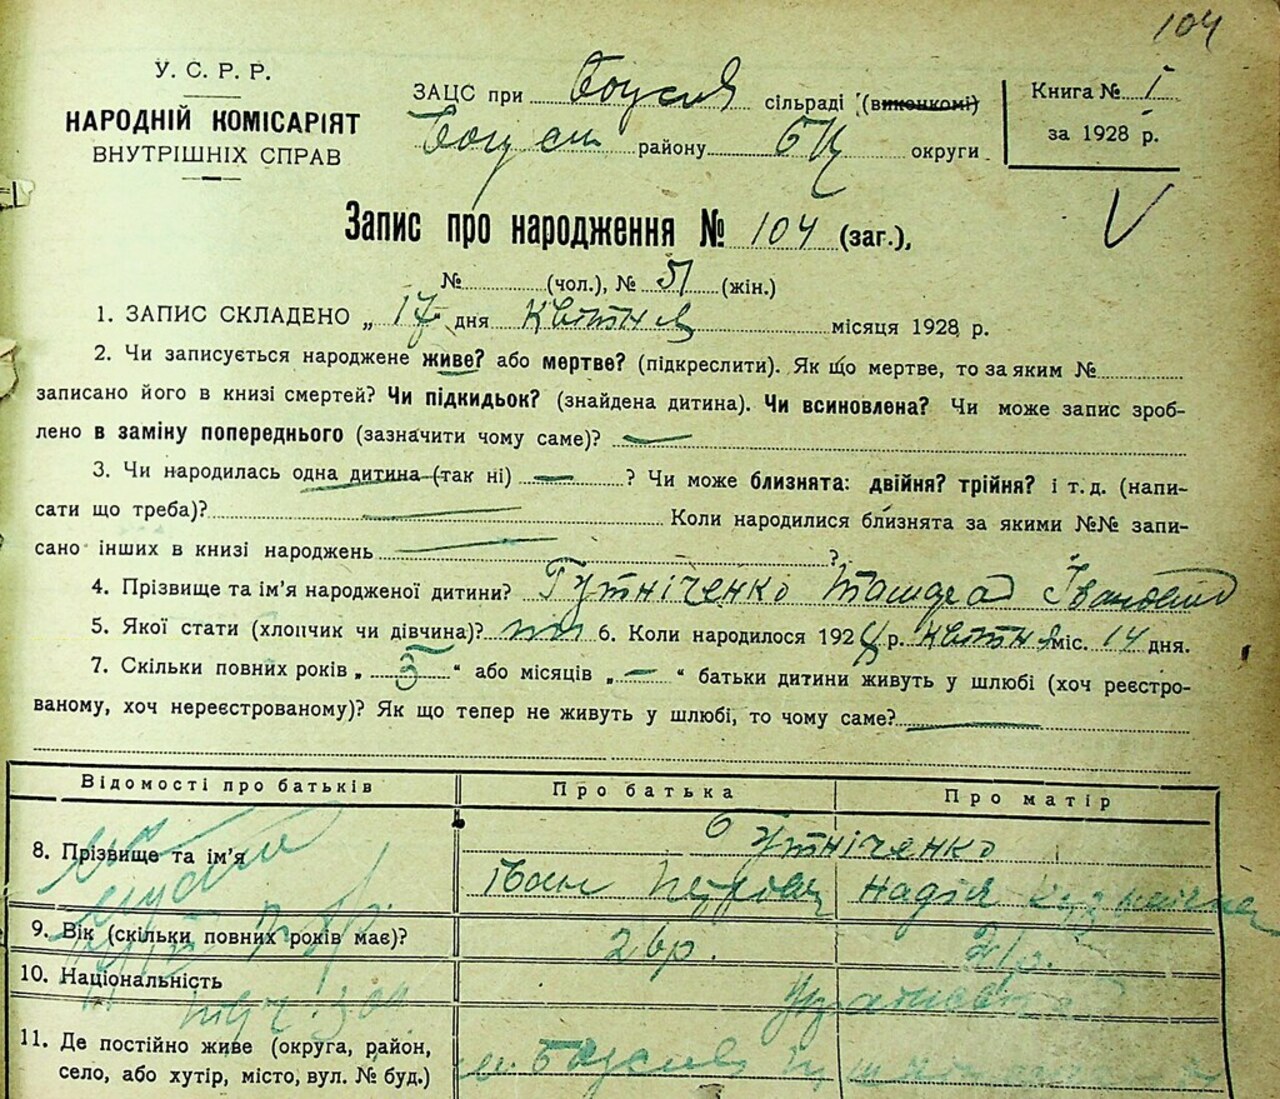 104
У. С. Р. Р.
НАРОДНІЙ КОМІСАРІЯТ
ВНУТРІШНІХ СПРАВ
ЗАЦС при Богуслав сільраді (виконкомі)
Богусл району БЦ округи
Книга № 1
за 1928 р.
Запис про народження № 104 (заг.),
№ (чол.), № 51 (жін.)
1. ЗАПИС СКЛАДЕНО „ 17 дня квітня місяця 1928 р.
2. Чи записується народжене живе? або мертве? (підкреслити). Як що мертве, то за яким №
записано його в книзі смертей? Чи підкидьок? (знайдена дитина). Чи всиновлена? Чи може запис зроб-
лено в заміну попереднього (зазначити чому саме)? —
3. Чи народилась одна дитина (так ні) — ? Чи може близнята: двійня? трійня? і т. д. (напи-
сати що треба)? — Коли народилися близнята за якими №№ запи-
сано інших в книзі народжень — ?
4. Прізвище та ім'я народженої дитини? Гутніченко Івановна
5. Якої стати (хлопчик чи дівчина)? 6. Коли народилося 1928 р. квітня міс. 14 дня.
7. Скільки повних років „ 3 “ або місяців „ — “ батьки дитини живуть у шлюбі (хоч реєстро-
ваному, хоч нереєстрованому)? Як що тепер не живуть у шлюбі, то чому саме? —
Відомості про батьків Про батька Про матір
8. Прізвище та ім'я Гутніченко
Іван Петрович Надія Кузьмінічна
9. Вік (скільки повних років має)? 26р. 21р.
10. Національність
11. Де постійно живе (округа, район,
село, або хутір, місто, вул. № буд.) м. Богуслав